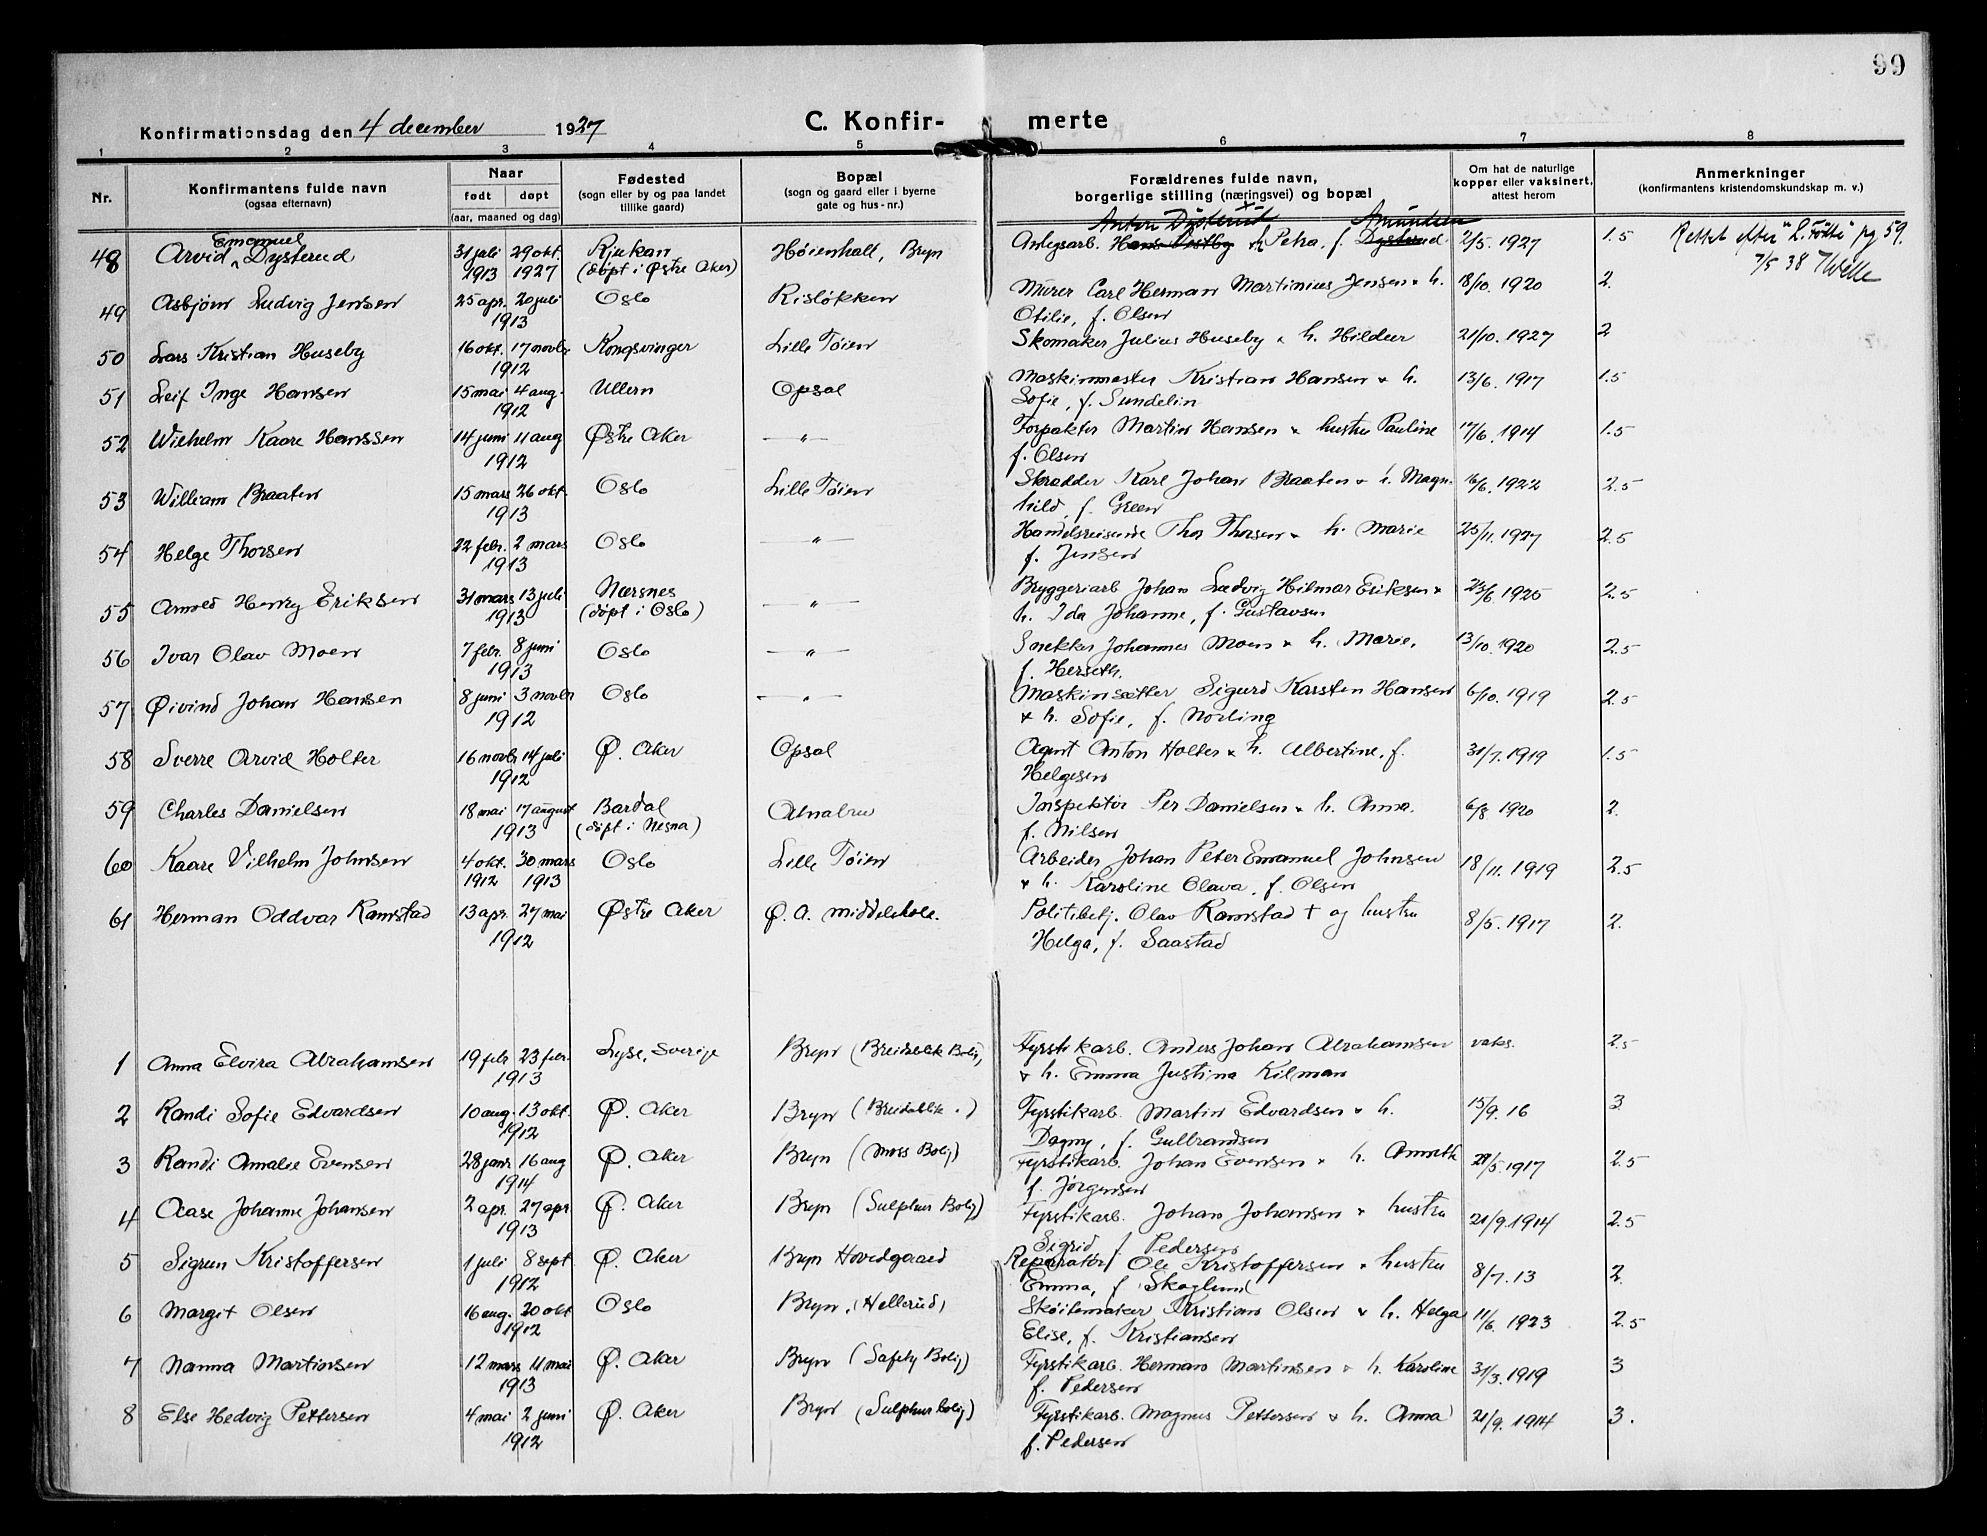 99
Konfirmationsdag den 4 december 1927 C. Konfir- merte
1 2 3 4 5 6 7 8
Nr. Konfirmantens fulde navn (ogsaa efternavn) Naar født døpt (aar, maaned og dag) Fødested (sogn eller by og paa landet tillike gaard) Bopæl (sogn og gaard eller i byerne gate og hus-nr.) Forældrenes fulde navn, borgerlige stilling (næringsvei) og bopæl Om hat de naturlige kopper eller vaksinert, attest herom Anmerkninger (konfirmantens kristendomskundskap m. v.)
Emanuel Anton Dysterud Amundsen
48 Arvid Dysterud 31 juli 29 okt. Rjukan Høienhall, Bryn Anlegsarb. Hans Vestby h. Petra, f. Dysterud 2/5. 1927 1.5 Rettet efter pg 59.
1913 1927 (døpt i Østre Aker) 7/5 38
49 Asbjørn Ludvig Jensen 25 apr. 20 juli Oslo Risløkken Murer Carl Herman Martinius Jensen + h. 18/10. 1920 2.
1913 Otilie, f. Olsen
50 Lars Kristian Huseby 16 okt. 17 novbr Kongsvinger Lille Tøien Skomaker Julius Huseby + h. Hildur 21/10. 1927 2
1912
51 Leif Inge Hansen 15 mai 4 aug. Ullern Opsal Maskinmester Kristian Hansen + h. 13/6. 1917 1.5
1912 Sofie, f. Sundelin
52 Wilhelm Kaare Hanssen 14 juni 11 aug Østre Aker — " — Forpakter Martin Hansen + hustru Pauline 17/6. 1914 1.5
1912 f. Olsen
53 William Braaten 15 mars 26 okt. Oslo Lille Tøien Skrædder Karl Johan Braaten + h. Magn- 16/6. 1922 2.5
1913 hild, f. Green
54 Helge Thorsen 22 febr. 2 mars Oslo — " — Handelsreisende Thor Thorsen + h. Marie 25/11. 1927 2.5
1913 f. Jensen
55 Arnold Henry Eriksen 31 mars 13 juli Nærsnes — " — Bryggeriarb Johan Ludvig Hilmar Eriksen + 23/6. 1925 2.5
1913 (døpt i Oslo) h. Ida Johanne, f. Gustavsen
56 Ivar Olav Moen 7 febr. 8 juni Oslo — " — Snekker Johannes Moen + h. Marie, 13/10. 1920 2.5
1913 f. Herseth.
57 Øivind Johan Hansen 8 juni 3 novbr Oslo — " — Maskinsætter Sigurd Karsten Hansen 6/10. 1919 2.5
1912 + h. Sofie, f. Norling
58 Sverre Arvid Holter 16 novbr 14 juli Ø. Aker Opsal Agent Anton Holter + h. Albertine, f. 31/7. 1919 1.5
1912 Helgesen
59 Charles Danielsen 18 mai 17 august Bardal Alnabru Inspektør Per Danielsen + h. Anna. 6/8 1920 2.
1913 (døpt i Nesna) f. Nilsen
60 Kaare Vilhelm Johnsen 4 okt. 30 mars Oslo Lille Tøien Arbeider Johan Peter Emanuel Johnsen 18/11. 1919 2.5
1912 1913 + h. Karoline Olava, f. Olsen
61 Herman Oddvar Ramstad 13 apr. 27 mai Østre Aker Ø. A. middelskole. Politibetj. Olav Ramstad † og hustru 8/5. 1917 2.
1912 Helga, f. Saastad
1 Anna Elvira Abrahamsen 19 febr 23 febr. Lyse, Sverige Bryn (Breidablik Bolig) Fyrstikarb. Anders Johan Abrahamsen vaks. 2.5
1913 + h. Emma Justina Kilman
2 Randi Sofie Edvardsen 10 aug. 13 okt. Ø. Aker Bryn (Breidablik ") Fyrstikarb. Martin Edvardsen + h. 15/9. 16 3
1912 Dagny, f. Gulbrandsen
3 Randi Amalie Evensen 28 janr 16 aug Ø. Aker Bryn (Moss Bolig) Fyrstikarb. Johan Evensen + h. Anneth 29/5. 1917 2.5
1914 f. Jørgensen
4 Aase Johanne Johansen 2 apr. 27 apr Ø. Aker Bryn (Sulphur Bolig) Fyrstikarb. Johan Johansen + hustru 21/9. 1914 2.5
1913 Sigrid f. Pedersen
5 Sigrun Kristoffersen 1 juli 8 sept. Ø. Aker Bryn Hovedgaard Reparatør Ole Kristoffersen + hustru 8/7. 13 2.
1912 Emma, f. Skoglund
6 Margit Olsen 16 aug. 20 okt Oslo Bryn, (Hellerud) Skøitemaker Kristian Olsen + h. Helga 11/6. 1923 2.5
1912 Elise, f. Kristiansen
7 Nanna Martinsen 12 mars 11 mai Ø. Aker Bryn (Safety Bolig) Fyrstikarb. Herman Martinsen + h. Karoline 31/3. 1919 3
1913 f. Pedersen
8 Else Hedvig Pettersen 4 mai 2 juni Ø. Aker Bryn (Sulphur bolig) Fyrstikarb. Magnus Pettersen + h. Anna 21/9. 1914 3.
1912 f. Pedersen